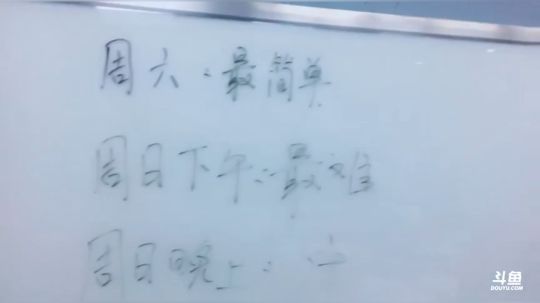 周六：最简单
周日下午：最难
周日晚上：中
斗鱼
DOUYU.COM